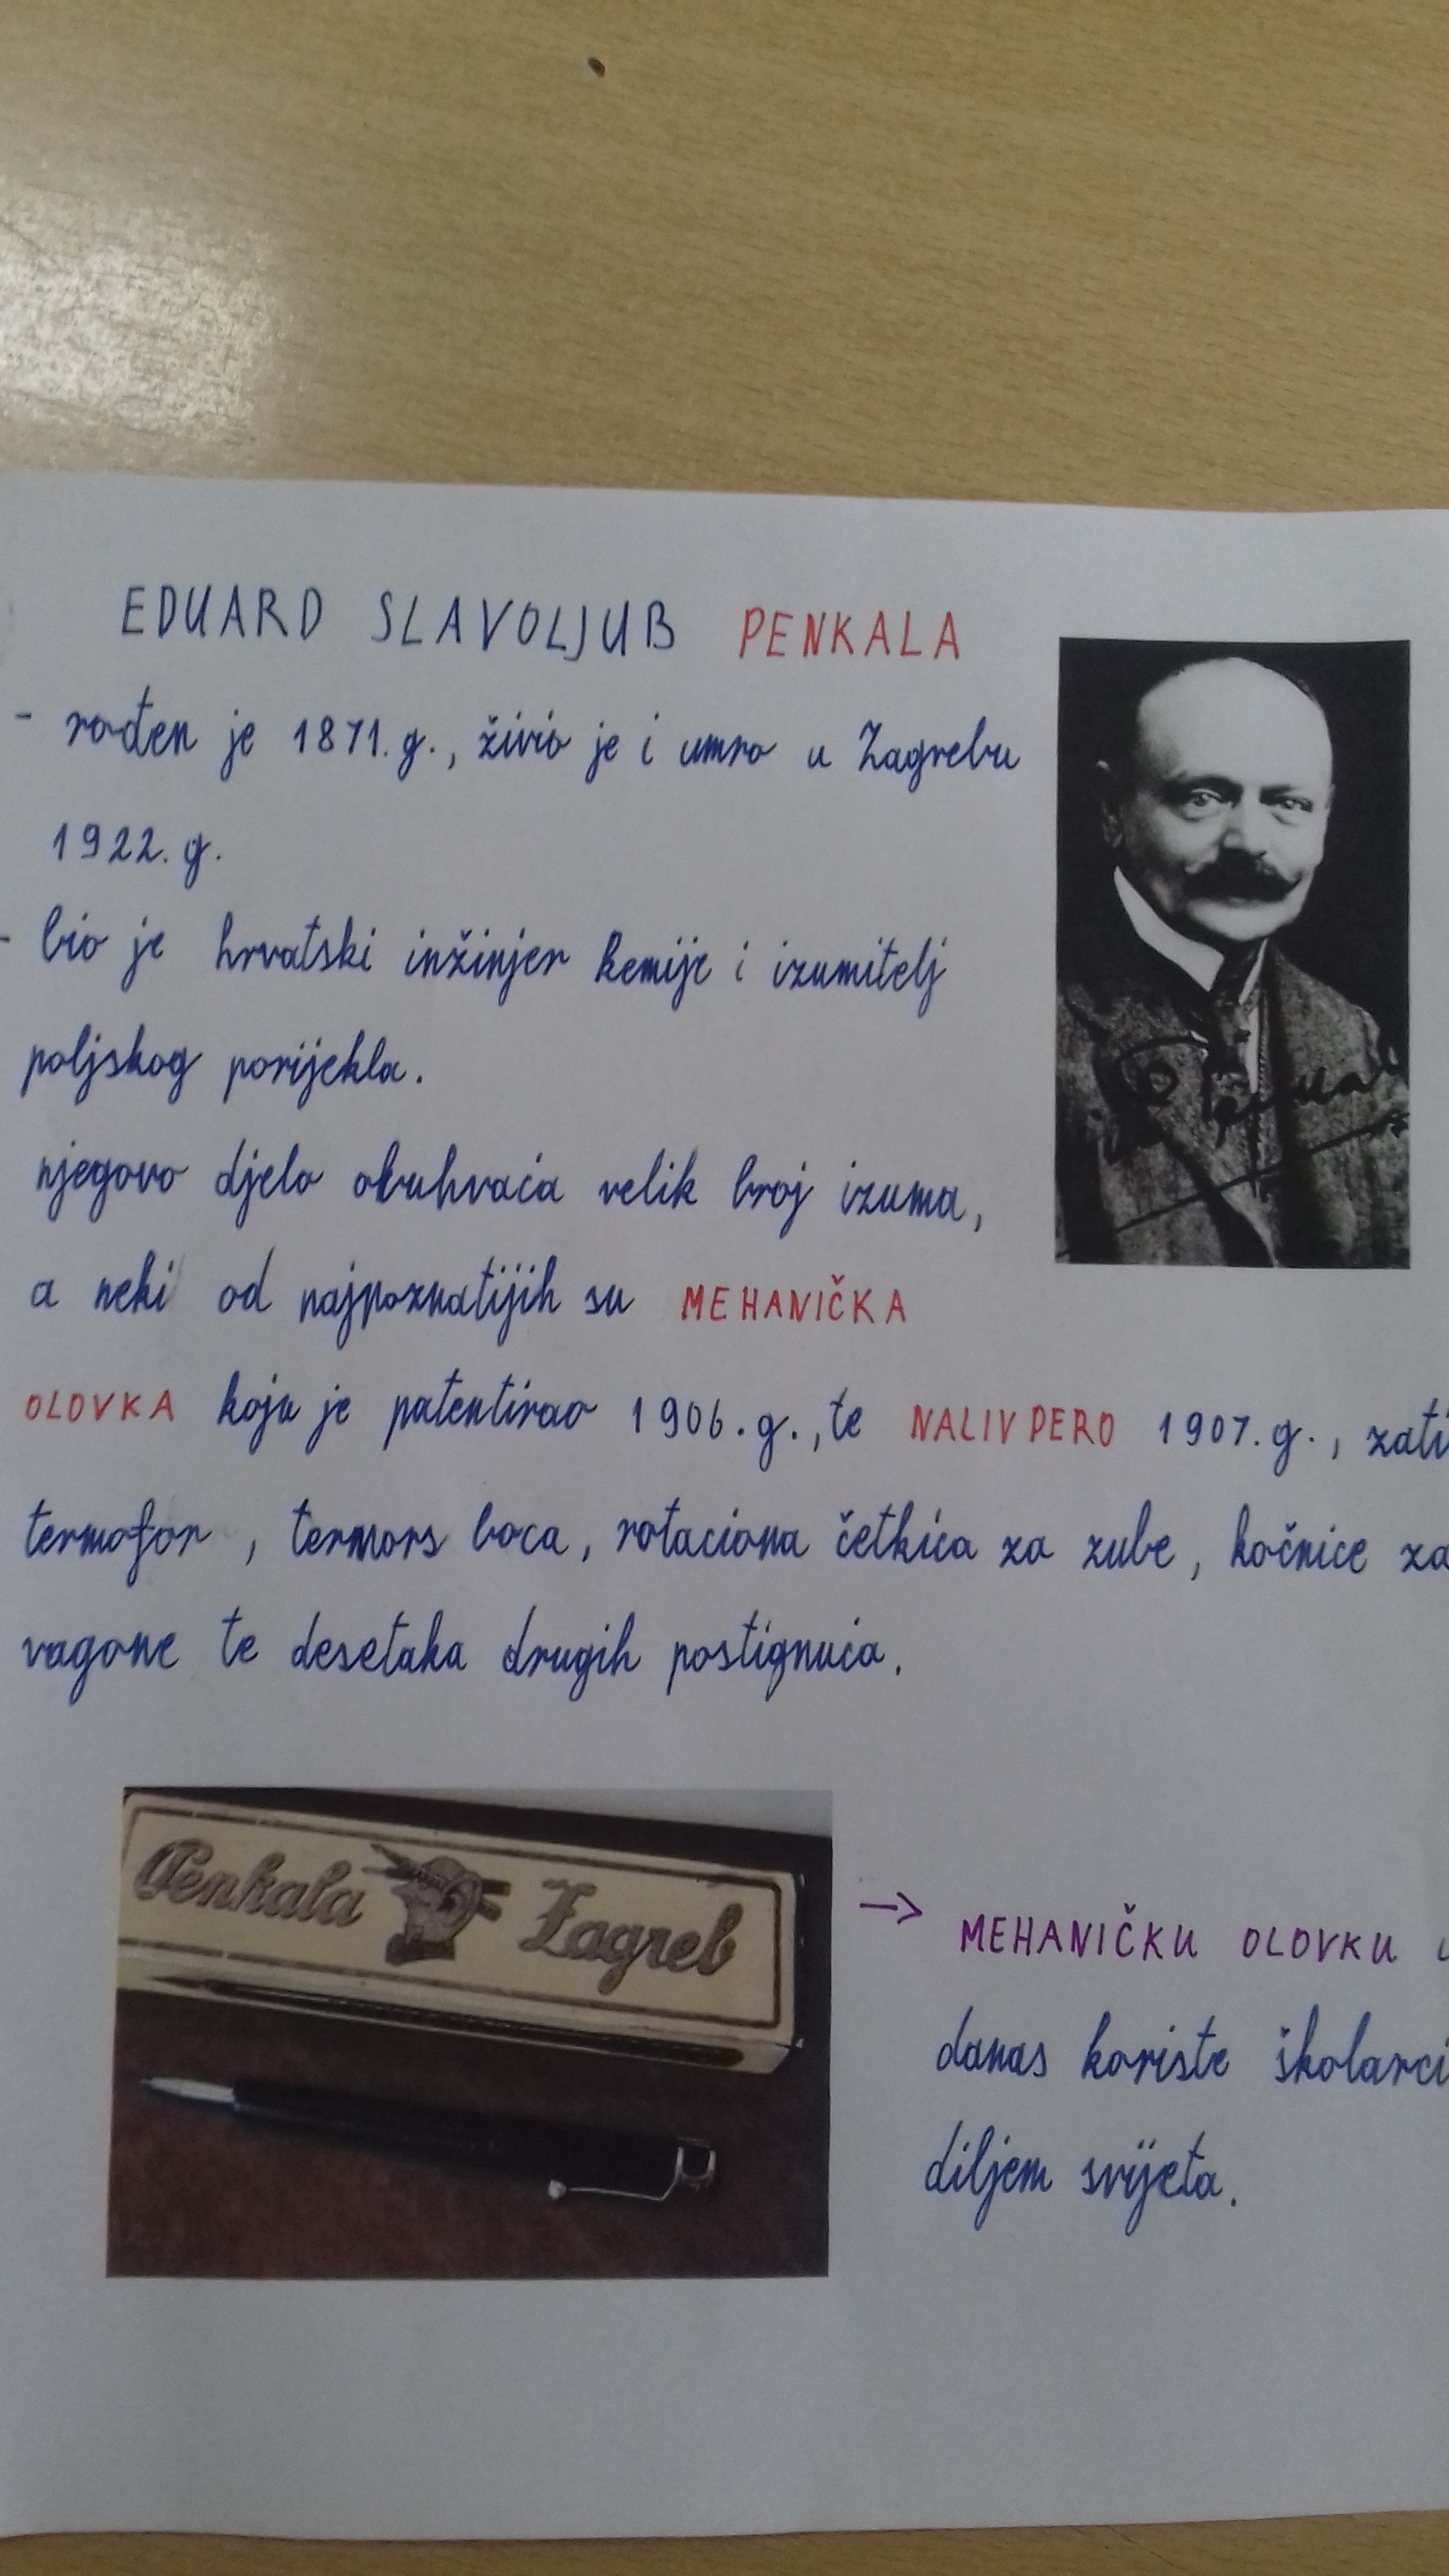 EDUARD SLAVOLJUB PENKALA
- rođen je 1871.g., živio je i umro u Zagrebu
1922.g.
- bio je hrvatski inžinjer kemije i izumitelj
poljskog porijekla.
njegovo djelo obuhvaća velik broj izuma,
a neki od najpoznatijih su MEHANIČKA
OLOVKA koju je patentirao 1906.g., te NALIVPERO 1907.g., zati
termofor, termors boca, rotaciona četkica za zube, kočnice za
vagone te desetaka drugih postignuća.
Penkala Zagreb
→ MEHANIČKU OLOVKU
danas koriste školarci
diljem svijeta.